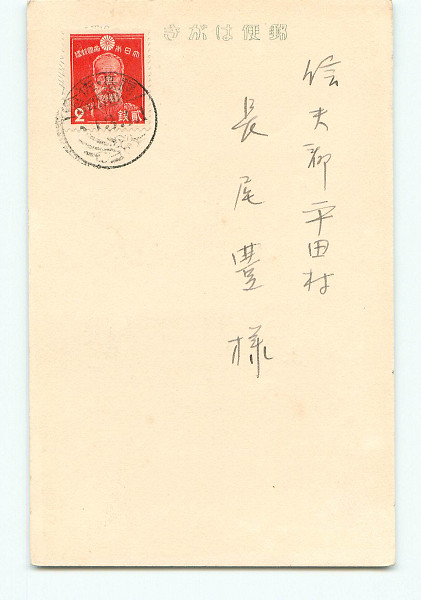 郵便はがき
大日本帝國郵便
2
貳錢
夫郡平田村
長尾豊様